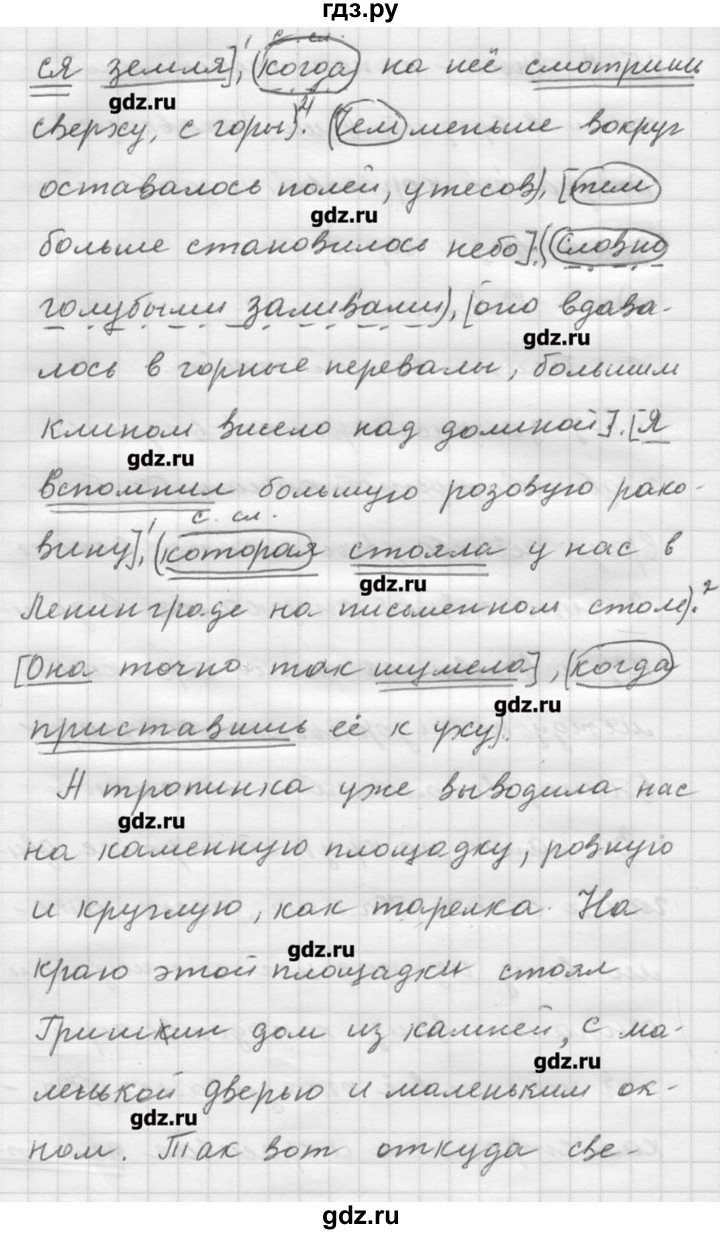 гдз.ру
с. сл.
ся земля],¹ (когда на неё смотришь
gdz.ru
сверху, с горы)². (Чем меньше вокруг
оставалось полей, утесов), [тем
gdz.ru
больше становилось небо]. (Словно
голубыми заливами), [оно вдава-
gdz.ru
лось в горные перевалы, большим
клином висело над долиной]. [Я
gdz.ru
вспомнил большую розовую рако-
с. сл.
вину],¹ (которая стояла у нас в
gdz.ru
Ленинграде на письменном столе).²
[Она точно так шумела], (когда
gdz.ru
приставишь её к уху).
А тропинка уже выводила нас
gdz.ru
на каменную площадку, ровную
и круглую, как тарелка. На
gdz.ru
краю этой площадки стоял
Гришкин дом из камней, с ма-
gdz.ru
ленькой дверью и маленьким ок-
gdz.ru
ном. Так вот откуда све-
gdz.ru